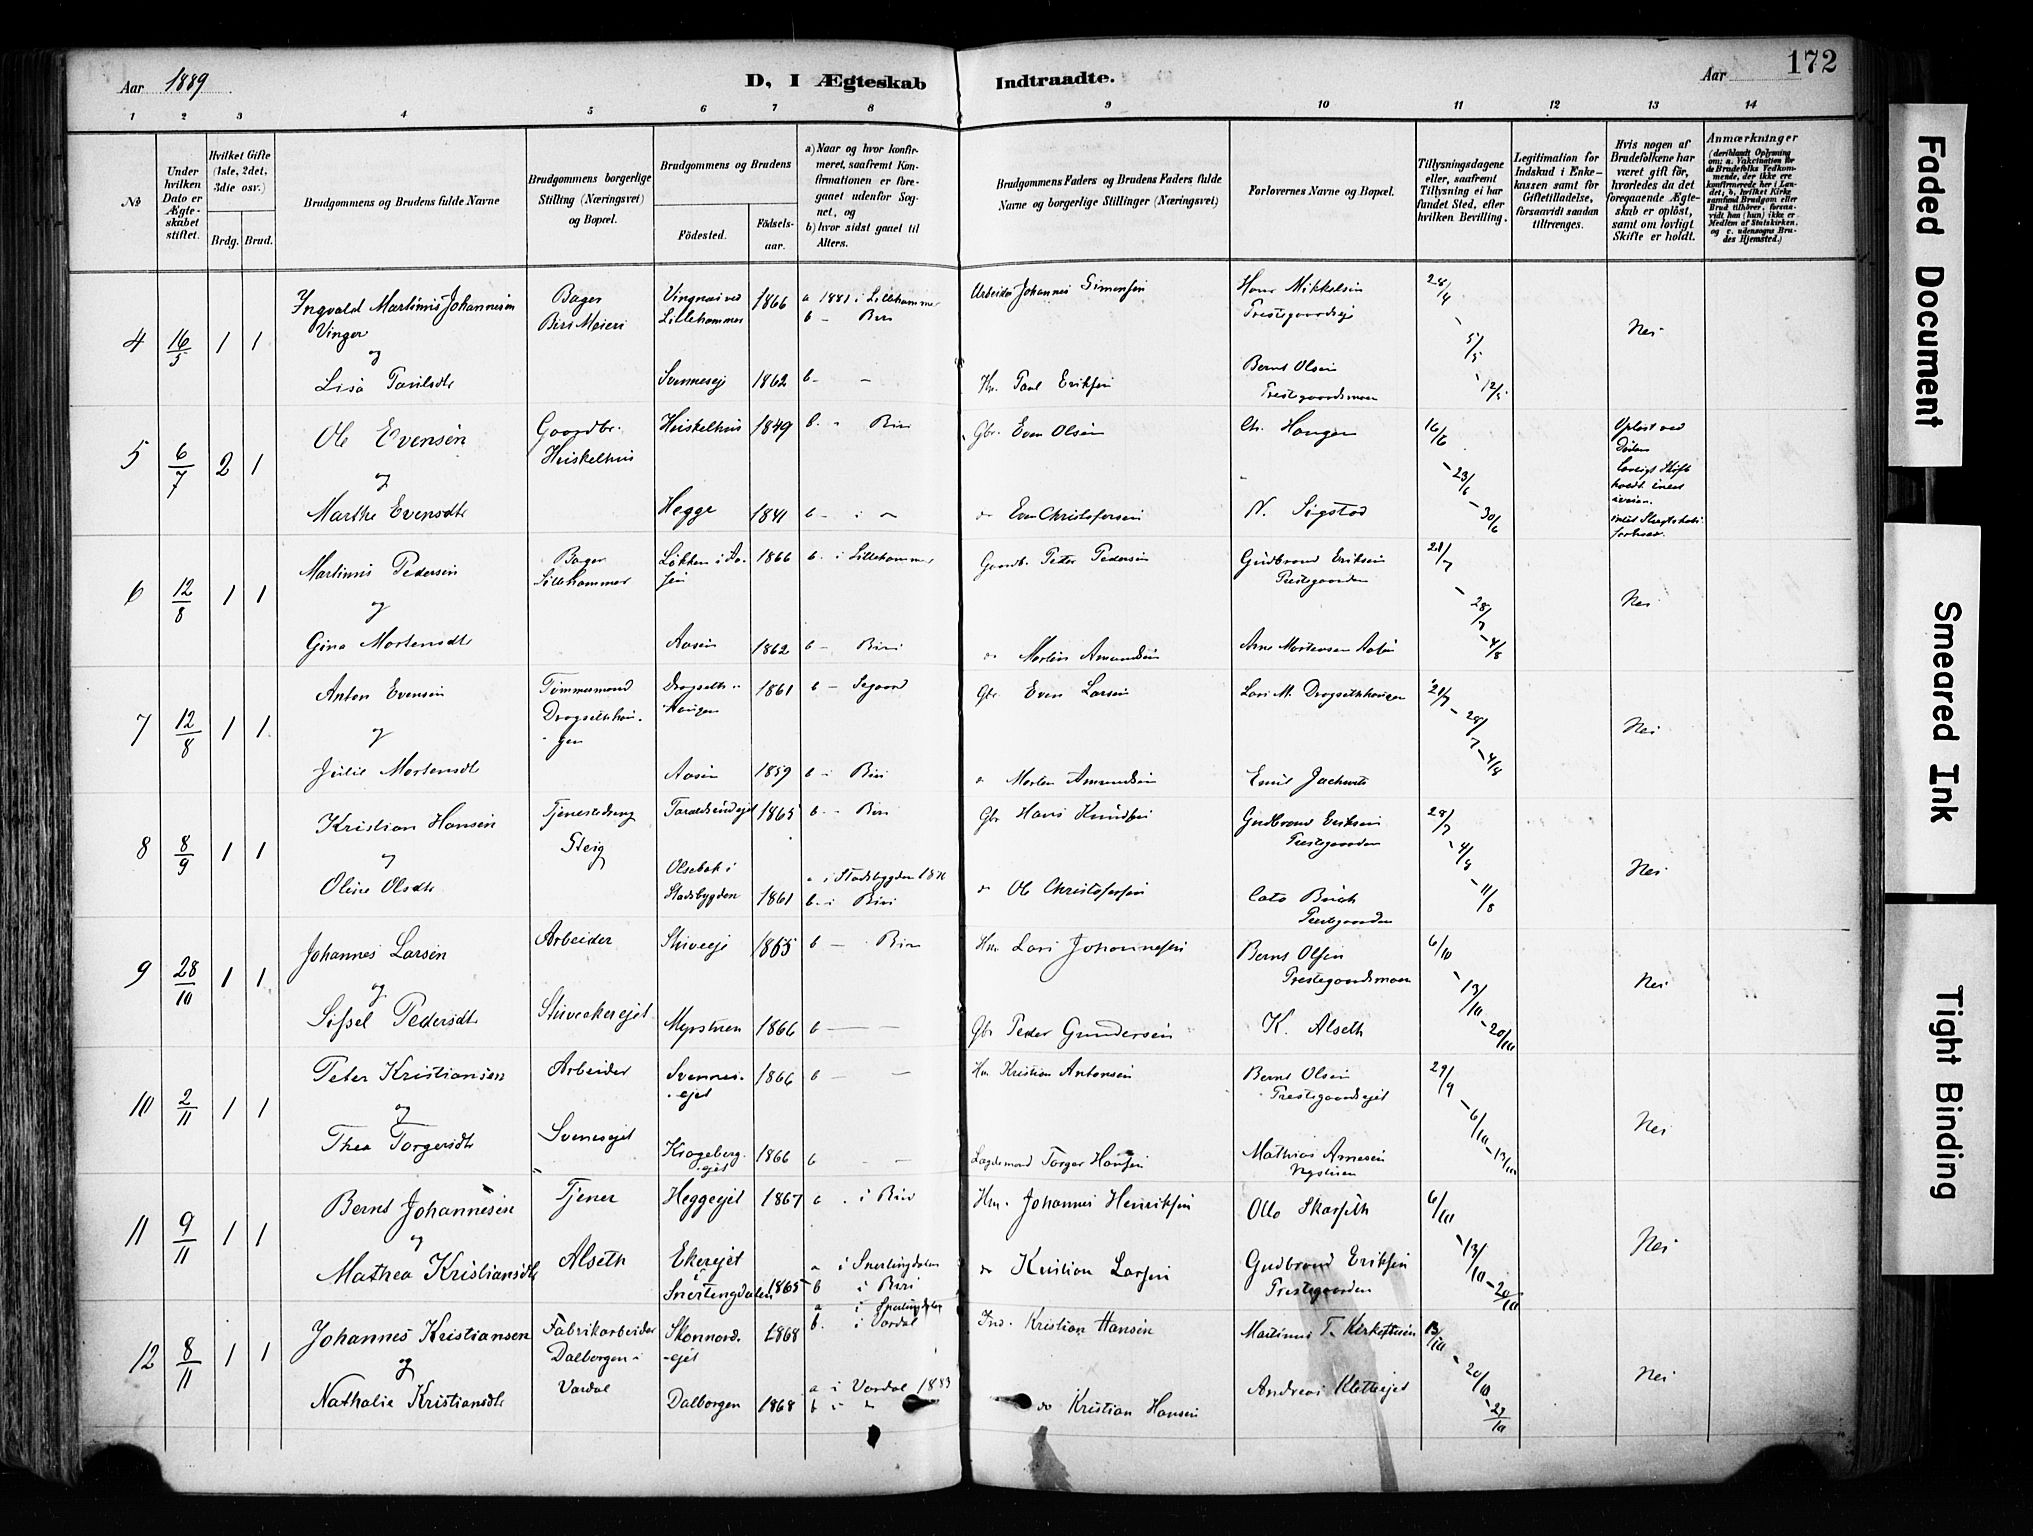 172
Aar 1889
D, I Ægteskab Indtraadte.
Aar
1 2 3 4 5 6 7 8 9 10 11 12 13 14
No
Under hvilken Dato er Ægteskabet stiftet.
Hvilket Gifte (1ste, 2det, 3die osv.)
Brdg. Brud.
Brudgommens og Brudens fulde Navne
Brudgommens borgerlige Stilling (Næringsvei) og Bopæl.
Brudgommens og Brudens
Fødested.
Fødselsaar.
a) Naar og hvor konfirmeret, saafremt Konfirmationen er foregaaet udenfor Sognet, og
b) hvor sidst gaaet til Alters.
Brudgommens Faders og Brudens Faders fulde Navne og borgerlige Stillinger (Næringsvei)
Forlovernes Navne og Bopæl.
Tillysningsdagene eller, saafremt Tillysning ei har fundet Sted, efter hvilken Bevilling.
Legitimation for Indskud i Enkekassen samt for Giftetilladelse, forsaavidt saadan tiltrænges.
Hvis nogen af Brudefolkene har været gift før, hvorledes da det foregaaende Ægteskab er opløst, samt om lovligt Skifte er holdt.
Anmærkninger
4 16/5 1 1
Ingvald Martinus Johannesen Vinger
og
Lisa Paulsdt
Bager
Biri Meieri
Vingnæs ved Lillehammer 1866
a 1881 i Lillehammer
b - Biri
Svennesej 1862 b - -
Arbeider Johannes Simensen
Hm. Paul Eriksen
Hans Mikkelsen
Prestegaardsej
Bernt Olsen
Prestegaardsmoen
28/4 - 5/5 - 12/5
Nei
5 6/7 2 1
Ole Evensen
og
Marthe Evensdt
Gaardbr.
Heiskelhus
Heiskelhus 1849 b. - Biri
Hegge 1841 b - i -
Gbr. Even Olsen
do Even Christofersen
Ch. Haugen
N. Sigstad
16/6 - 23/6 - 30/6
Opløst ved Døden
6 12/8 1 1
Martinus Pedersen
og
Gina Mortensdt
Bager
Lillehammer
Løkken i Aasen 1866 b. i Lillehammer
Aasen 1862 b - Biri
Gaardb. Peter Pedersen
do Morten Amundsen
Gudbrand Eriksen
Prestegaarden
Arne Mortensen Aasen
21/7 - 28/7 - 4/8
Nei
7 12/8 1 1
Anton Evensen
og
Julie Mortensdt
Tømmermand
Drogsethhaugen
Drogsethhaugen 1861 b -
Aasen 1859 b - Biri
Gbr. Even Larsen
" Morten Amundsen
Lars M. Drogsethhaugen
Emil
21/7 - 28/7 - 4/8
Nei
8 8/9 1 1
Kristian Hansen
og
Oline Olsdt
Tjenestedreng
Steig
1865 b - Biri
Olsebak i Stadsbygden 1861
a i Stadsbygden
b. i Biri
Gbr Hans Knudsen
do Ole Christofersen
Gudbrand Eriksen
Prestegaarden
Cato
Prestegaarden
28/7 - 4/8 - 11/8
Nei
9 28/10 1 1
Johannes Larsen
og
Sissel Pedersdt
Arbeider
Skiveej 1865 b - Biri
Myrstuen 1866 b - -
Hm Lars Johannesen
Gbr Peder Gundersen
Bernt Olsen
Prestegaardsmoen
K. Alseth
6/10 - 13/10 - 20/10
Nei
10 2/11 1 1
Peter Kristiansen
og
Thea Torgersdt
Arbeider
Svenesejet
Svennesejet 1866 b - -
Krageberg-ejet 1866 b -
Hm Kristian Antonsen
Lægdsmand Torger Hansen
Bernt Olsen
Prestegaardsejet
Mathias Arnesen
Nystuen
29/9 - 6/10 - 13/10
Nei
11 9/11 1 1
Bernt Johannesen
og
Mathea Kristiansdt
Tjener
Alseth
Heggeejet 1867 b . i Biri
Ekerejet i Snertingdalen 1865
a i Snertingdalen
b i Biri
Hm. Johannes Henriksen
do Kristian Larsen
Otto Skarseth
Gudbrand Eriksen
Prestegaarden
6/10 - 13/10 - 20/10
Nei
12 8/11 1 1
Johannes Kristiansen
og
Nathalie Kristiansdt
Fabrikarbeider
Dalborgen i
Vardal
Skonnord-ejet 1868
b. i Vardal
Dalborgen 1868
a i Vardal 1883
b i "
Ind. Kristian Hansen
do Kristian Hansen
Martinus T. Kirkestuen
Andreas Kletteejet
13/10 - 20/10 - 27/10
Nei
Faded Document
Smeared Ink
Tight Binding